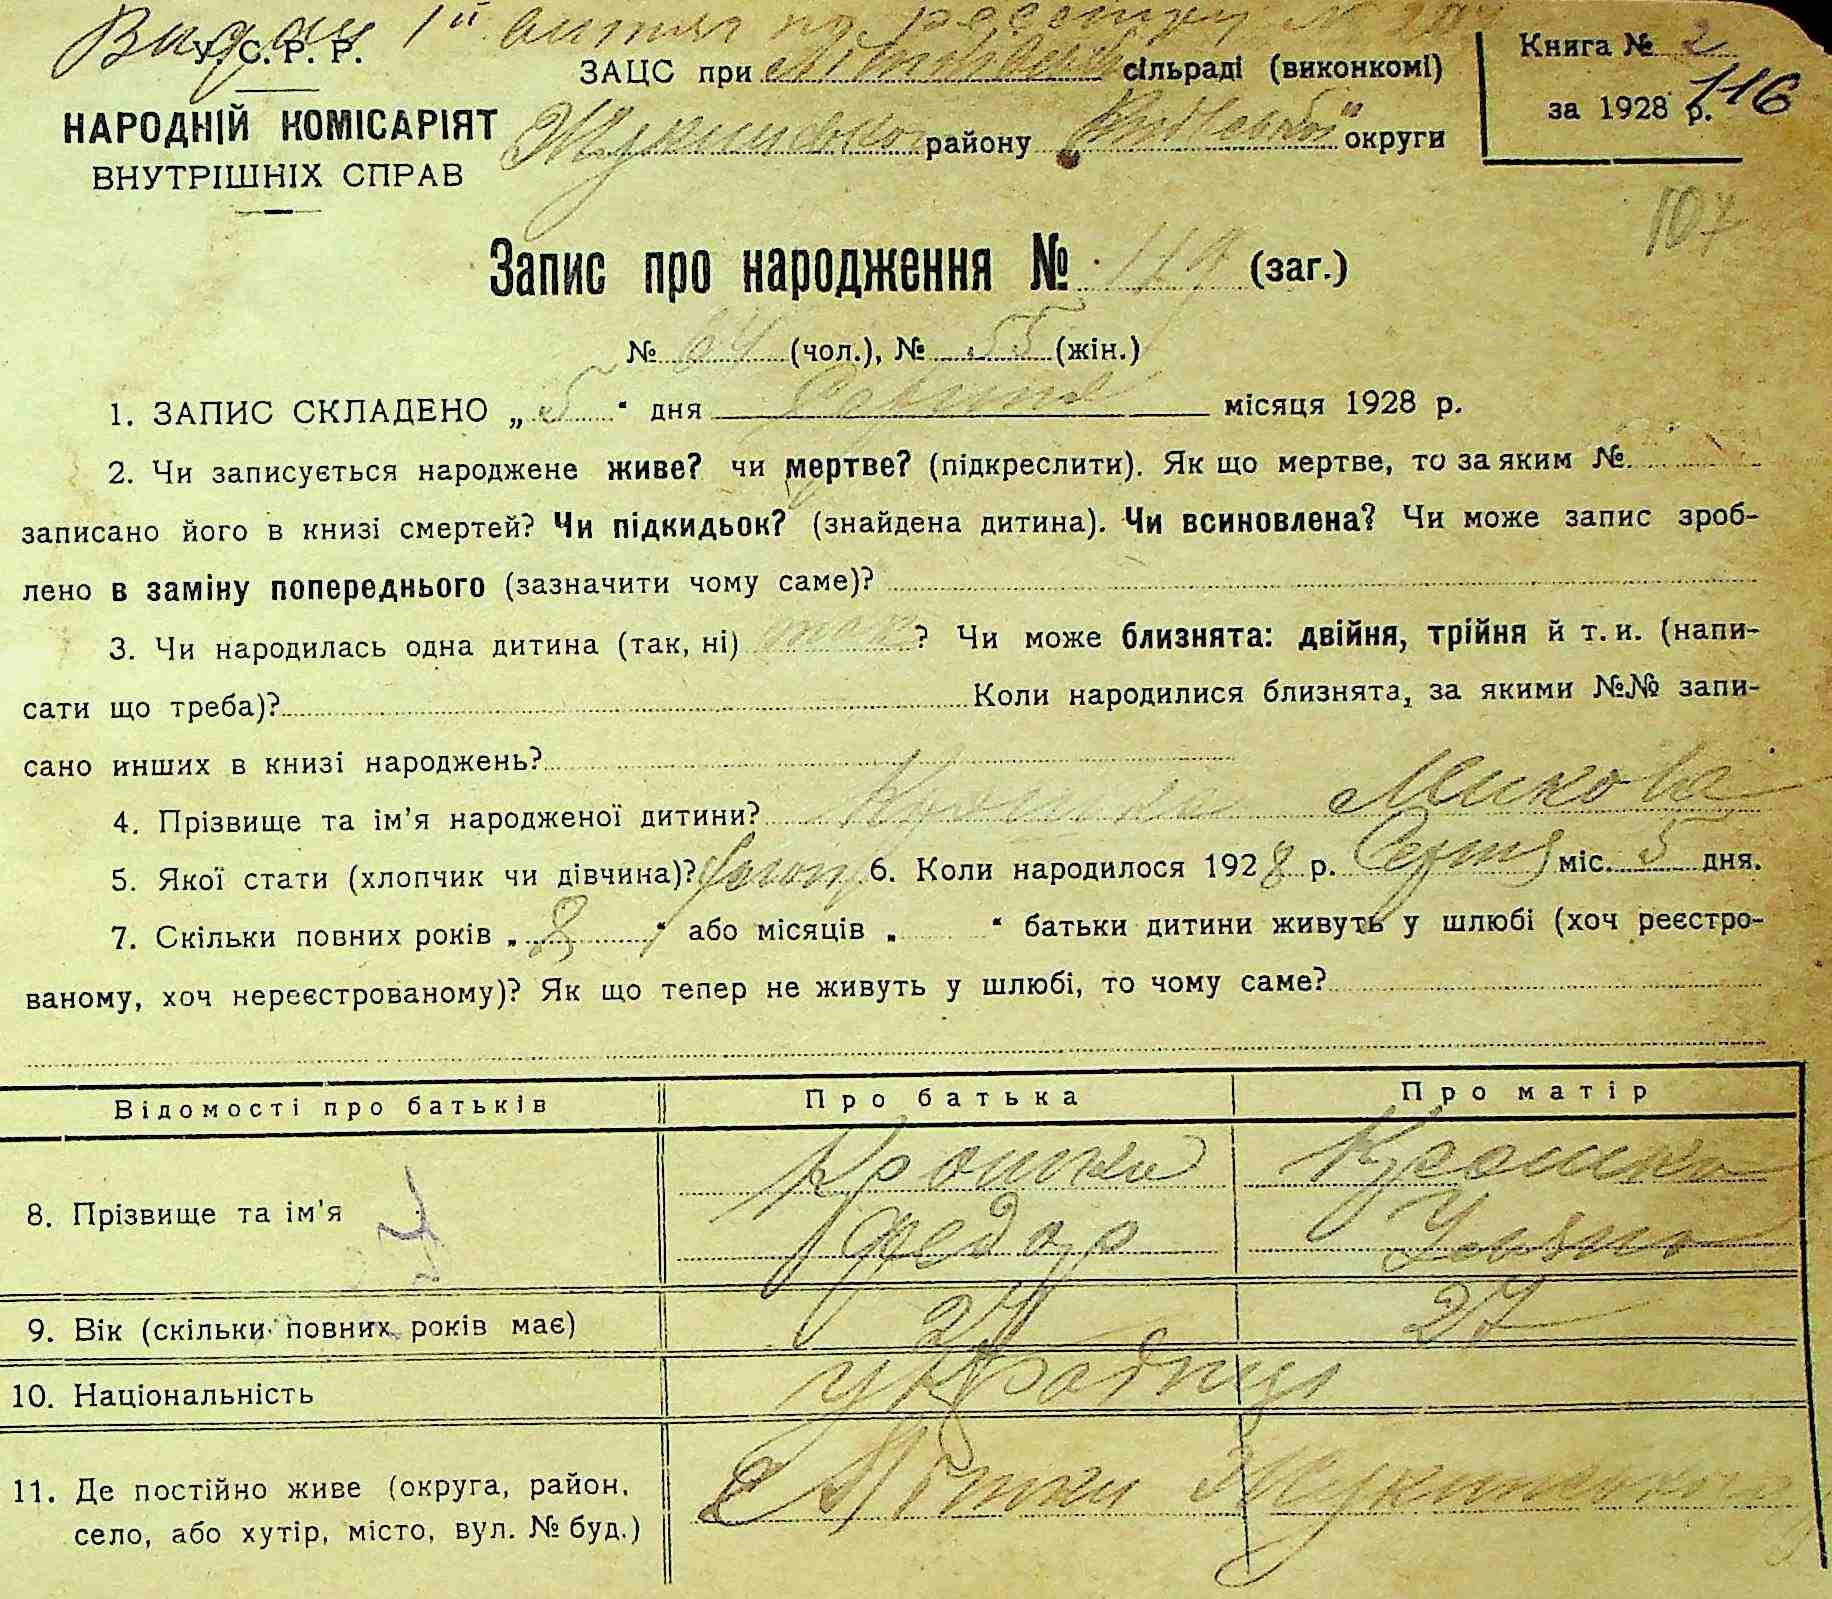 Видан 1й витяг по реестру №
У. С. Р. Р.
НАРОДНІЙ КОМІСАРІЯТ
ВНУТРІШНІХ СПРАВ
ЗАЦС при сільраді (виконкомі)
Жукинського району округи
Книга № 2
за 1928 р. 116
107
Запис про народження № 119 (заг.)
№ 64 (чол.), № 55 (жін.)
1. ЗАПИС СКЛАДЕНО „ 5 “ дня Серпня місяця 1928 р.
2. Чи записується народжене живе? чи мертве? (підкреслити). Як що мертве, то за яким №
записано його в книзі смертей? Чи підкидьок? (знайдена дитина). Чи всиновлена? Чи може запис зроб-
лено в заміну попереднього (зазначити чому саме)?
3. Чи народилась одна дитина (так, ні) так ? Чи може близнята: двійня, трійня й т. и. (напи-
сати що треба)? Коли народилися близнята, за якими №№ запи-
сано инших в книзі народжень?
4. Прізвище та ім'я народженої дитини? Крошка Микола
5. Якої стати (хлопчик чи дівчина)? 6. Коли народилося 1928 р. Серпня міс. 5 дня.
7. Скільки повних років „ 8 “ або місяців „ “ батьки дитини живуть у шлюбі (хоч реєстро-
ваному, хоч нереєстрованому)? Як що тепер не живуть у шлюбі, то чому саме?
Відомості про батьків Про батька Про матір
8. Прізвище та ім'я Крошка Федор Крошка Уляна
9. Вік (скільки повних років має) 27
10. Національність українці
11. Де постійно живе (округа, район, село, або хутір, місто, вул. № буд.) с Літки Жукинського